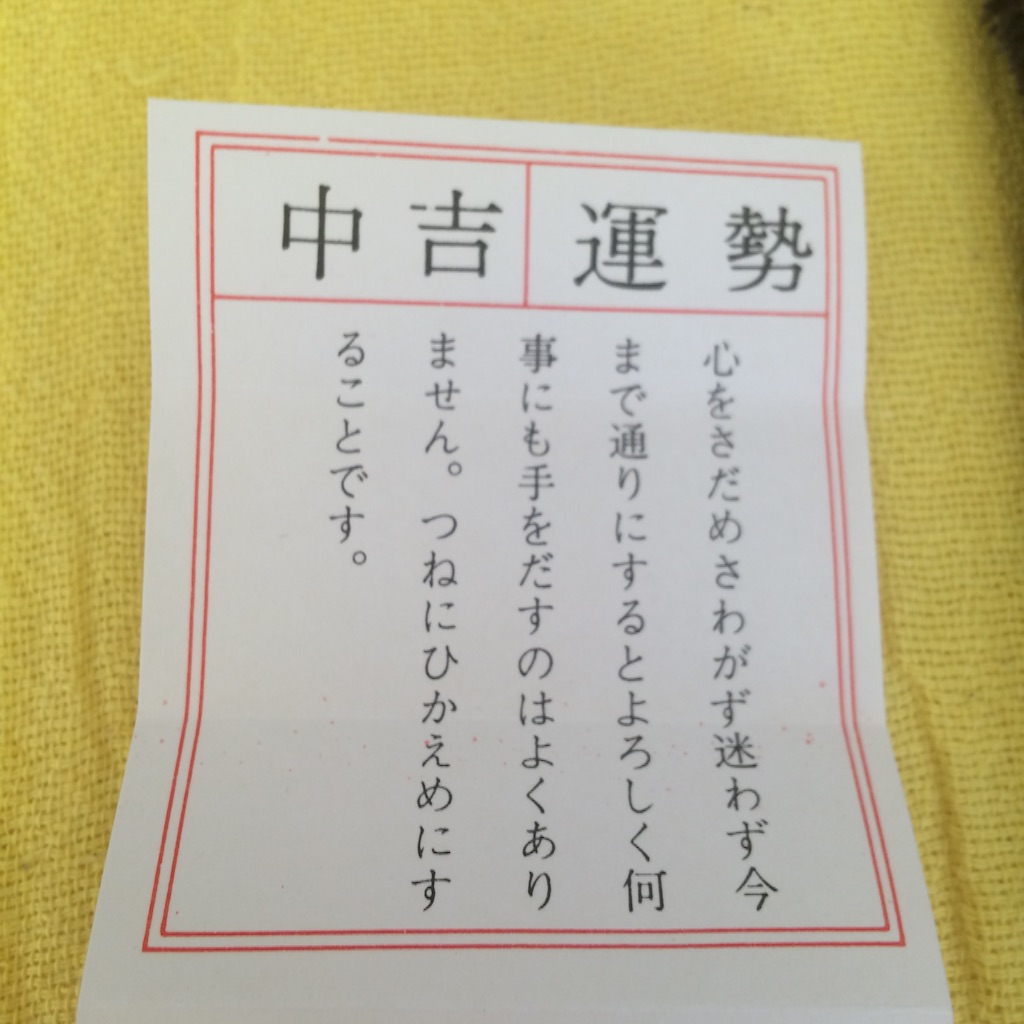 運勢
中吉
心をさだめさわがず迷わず今
まで通りにするとよろしく何
事にも手をだすのはよくあり
ません。つねにひかえめにす
ることです。